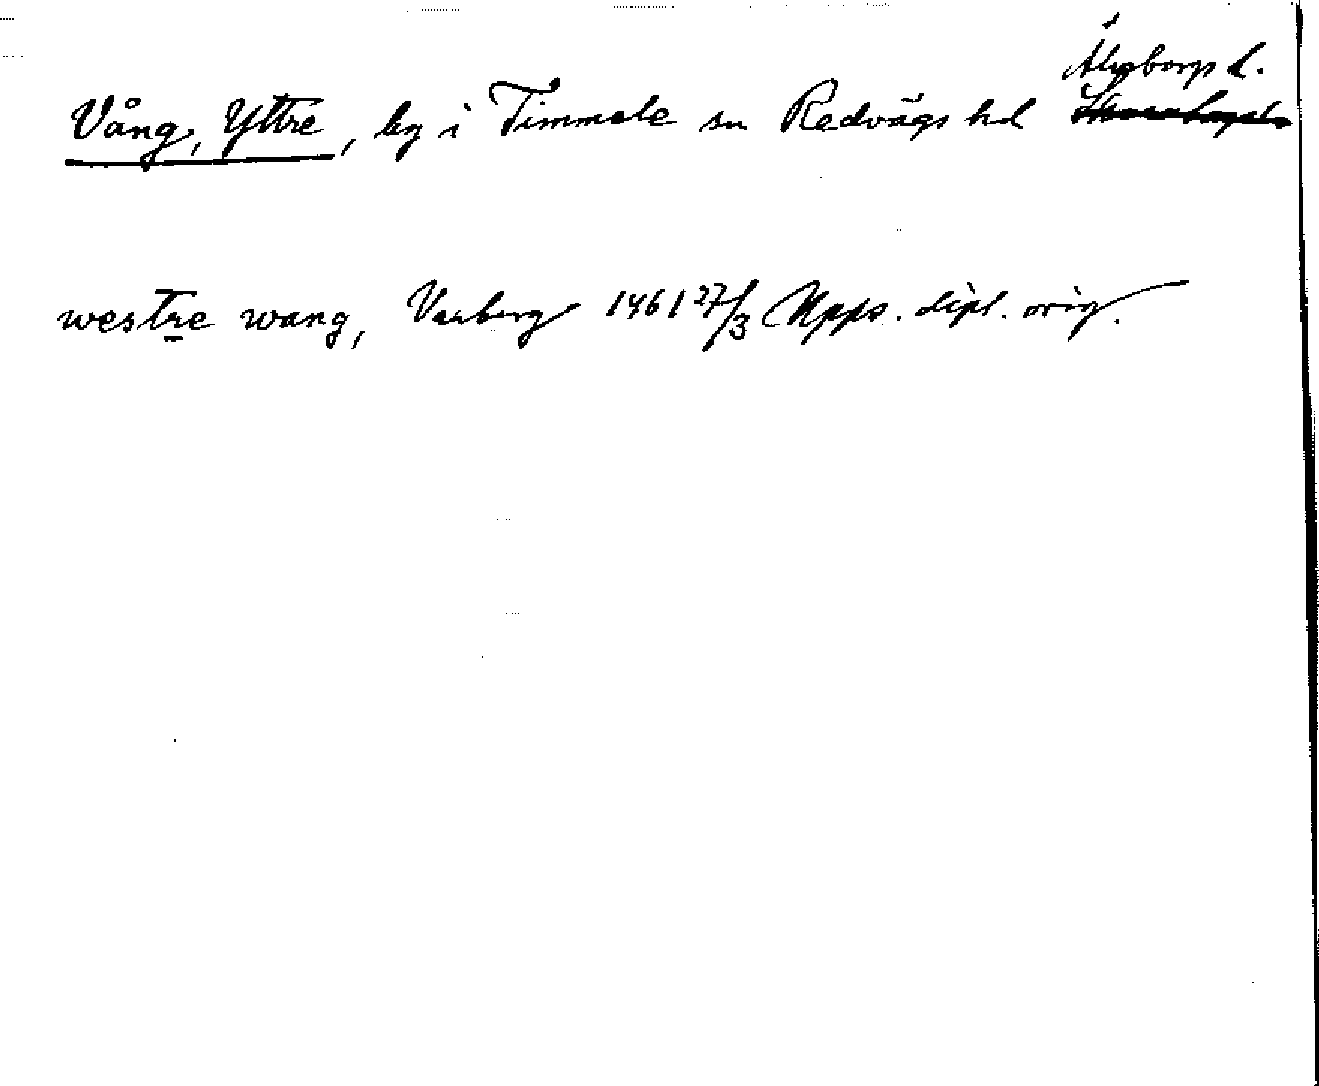 Älvsborgs l.
Vång, Yttre, by i Timmele sn Redvägs hd Skaraborgs l.
westre wang, Varberg 1461 27/3 Upps. dipl. orig.